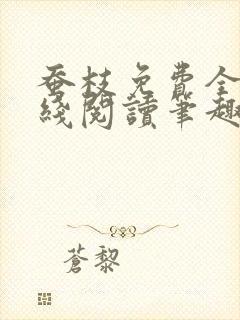 蚕枝免費全
綫閱讀筆趣
蒼黎